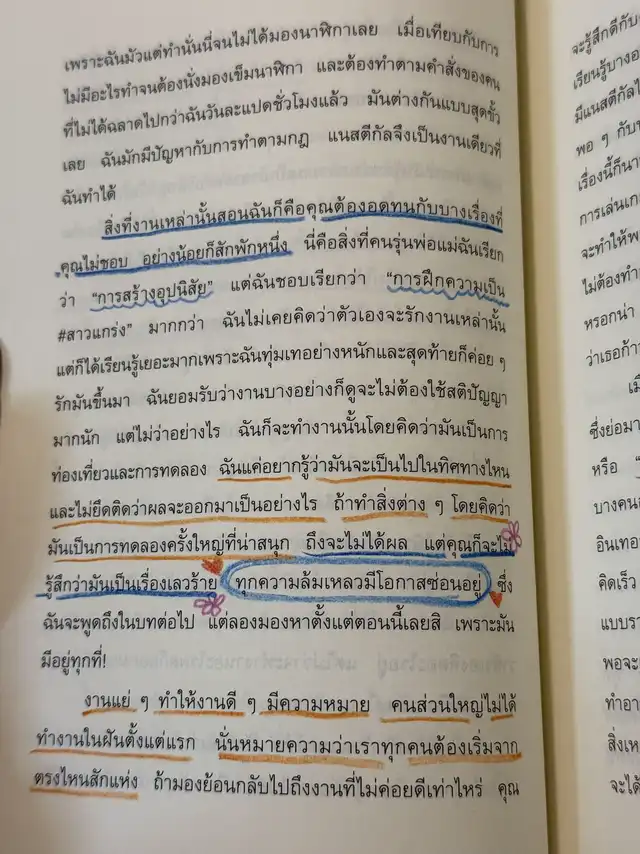 เพราะฉันมัวแต่ทำนั่นนี่จนไม่ได้มองนาฬิกาเลย เมื่อเทียบกับการ
ไม่มีอะไรทำจนต้องนั่งมองเข็มนาฬิกา และต้องทำตามคำสั่งของคน
ที่ไม่ได้ฉลาดไปกว่าฉันวันละแปดชั่วโมงแล้ว มันต่างกันแบบสุดขั้ว
เลย ฉันมักมีปัญหากับการทำตามกฎ แนสตีกัลจึงเป็นงานเดียวที่
ฉันทำได้
สิ่งที่งานเหล่านั้นสอนฉันก็คือคุณต้องอดทนกับบางเรื่องที่
คุณไม่ชอบ อย่างน้อยก็สักพักหนึ่ง นี่คือสิ่งที่คนรุ่นพ่อแม่ฉันเรียก
ว่า “การสร้างอุปนิสัย” แต่ฉันชอบเรียกว่า “การฝึกความเป็น
#สาวแกร่ง” มากกว่า ฉันไม่เคยคิดว่าตัวเองจะรักงานเหล่านั้น
แต่ก็ได้เรียนรู้เยอะมากเพราะฉันทุ่มเทอย่างหนักและสุดท้ายก็ค่อย ๆ
รักมันขึ้นมา ฉันยอมรับว่างานบางอย่างก็ดูจะไม่ต้องใช้สติปัญญา
มากนัก แต่ไม่ว่าอย่างไร ฉันก็จะทำงานนั้นโดยคิดว่ามันเป็นการ
ท่องเที่ยวและการทดลอง ฉันแค่อยากรู้ว่ามันจะเป็นไปในทิศทางไหน
และไม่ยึดติดว่าผลจะออกมาเป็นอย่างไร ถ้าทำสิ่งต่าง ๆ โดยคิดว่า
มันเป็นการทดลองครั้งใหญ่ที่น่าสนุก ถึงจะไม่ได้ผล แต่คุณก็จะไม่
รู้สึกว่ามันเป็นเรื่องเลวร้าย ทุกความล้มเหลวมีโอกาสซ่อนอยู่ ซึ่ง
ฉันจะพูดถึงในบทต่อไป แต่ลองมองหาตั้งแต่ตอนนี้เลยสิ เพราะมัน
มีอยู่ทุกที่!
งานแย่ ๆ ทำให้งานดี ๆ มีความหมาย คนส่วนใหญ่ไม่ได้
ทำงานในฝันตั้งแต่แรก นั่นหมายความว่าเราทุกคนต้องเริ่มจาก
ตรงไหนสักแห่ง ถ้ามองย้อนกลับไปถึงงานที่ไม่ค่อยดีเท่าไหร่ คุณ
จะรู้สึกดีกับ
เรียนรู้บางอ
มีแนสตีกัลไ
พอ ๆ กับ
เรื่องนี้ก็นา
การเล่นเก
จะทำให้พ
ไม่ต้องทำ
หรอกน่า
ว่าเธอก้า
เมื
ซึ่งย่อมา
หรือ
บางคน
อินเทอ
คิดเร็ว
แบบรา
พอจะ
ทำอา
สิ่งเห
จะได้